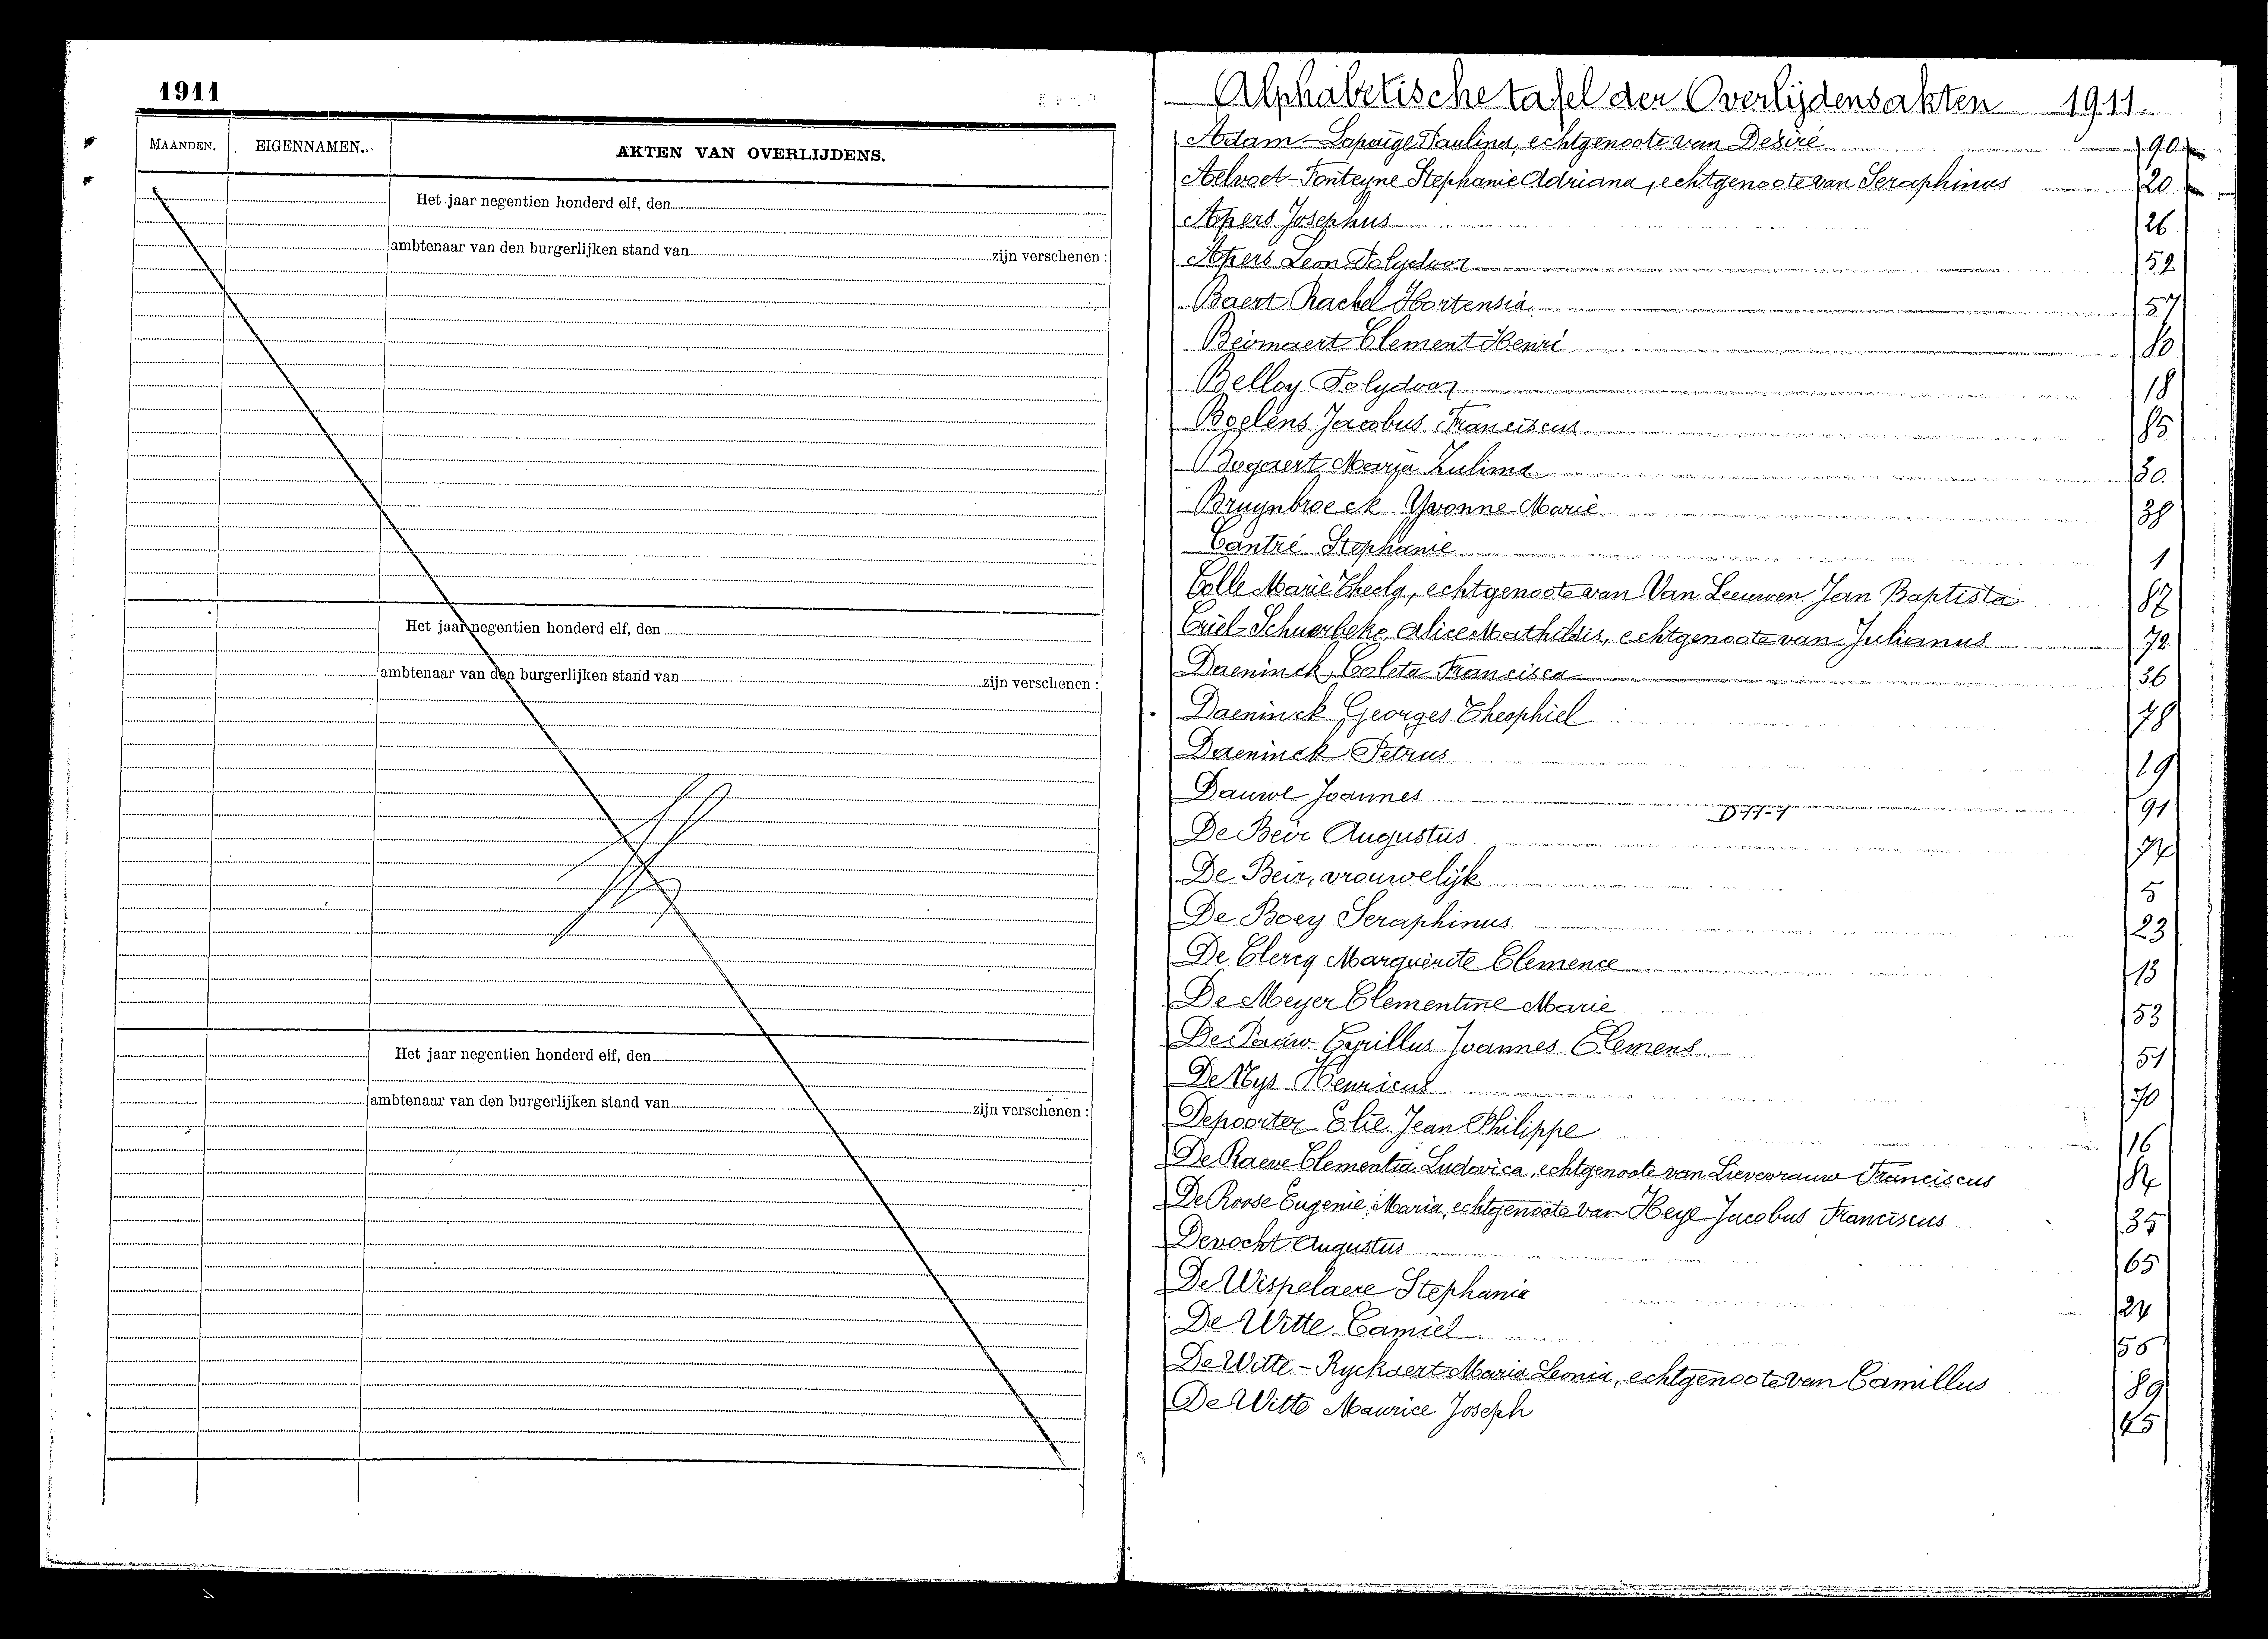 1911
MAANDEN. EIGENNAMEN. AKTEN VAN OVERLIJDENS.
Het jaar negentien honderd elf, den
ambtenaar van den burgerlijken stand van zijn verschenen :
Het jaar negentien honderd elf, den
ambtenaar van den burgerlijken stand van zijn verschenen :
Het jaar negentien honderd elf, den
ambtenaar van den burgerlijken stand van zijn verschenen :
Alphabetische tafel der Overlijdensakten 1911.
Adam - Lapaige Paulina, echtgenoote van Desiré 90
Aelvoet - Fonteyne Stephanie Adriana, echtgenoote van Seraphinus 20
Apers Josephus 26
Apers Leon Polydoor 52
Baert Rachel Hortensia 57
Beirnaert Clement Henri 80
Belloy Polydoor 18
Boelens Jacobus Franciscus 85
Bogaert Marya Zulima 30
Bruynbroeck Yvonne Marie 38
Cantré Stephanie 1
Colle Marie Thecla, echtgenoote van Van Leeuwen Jan Baptista 87
Criel - Schuerbeke Alice Mathildis, echtgenoote van Julianus 72
Daeninck Coleta Francisca 36
Daeninck Georges Theophiel 78
Daeninck Petrus 29
Dauwe Joannes 91
De Beir Augustus 74
De Beir, vrouwelijk 5
De Boey Seraphinus 23
De Clercq Marguerite Clemence 13
De Meyer Clementine Marie 53
De Pauw Cyrillus Joannes Clemens 51
De Nys Henricus 70
Depoorter Elie Jean Philippe 16
De Raeve Clementia Ludovica, echtgenoote van Lievevrauw Franciscus 84
De Roose Eugenie Maria, echtgenoote van Heye Jacobus Franciscus 35
Devocht Augustus 65
De Wispelaere Stephania 24
De Witte Camiel 55
De Witte - Ryckaert Maria Leonia, echtgenoote van Camillus 89
De Witte Maurice Joseph 45